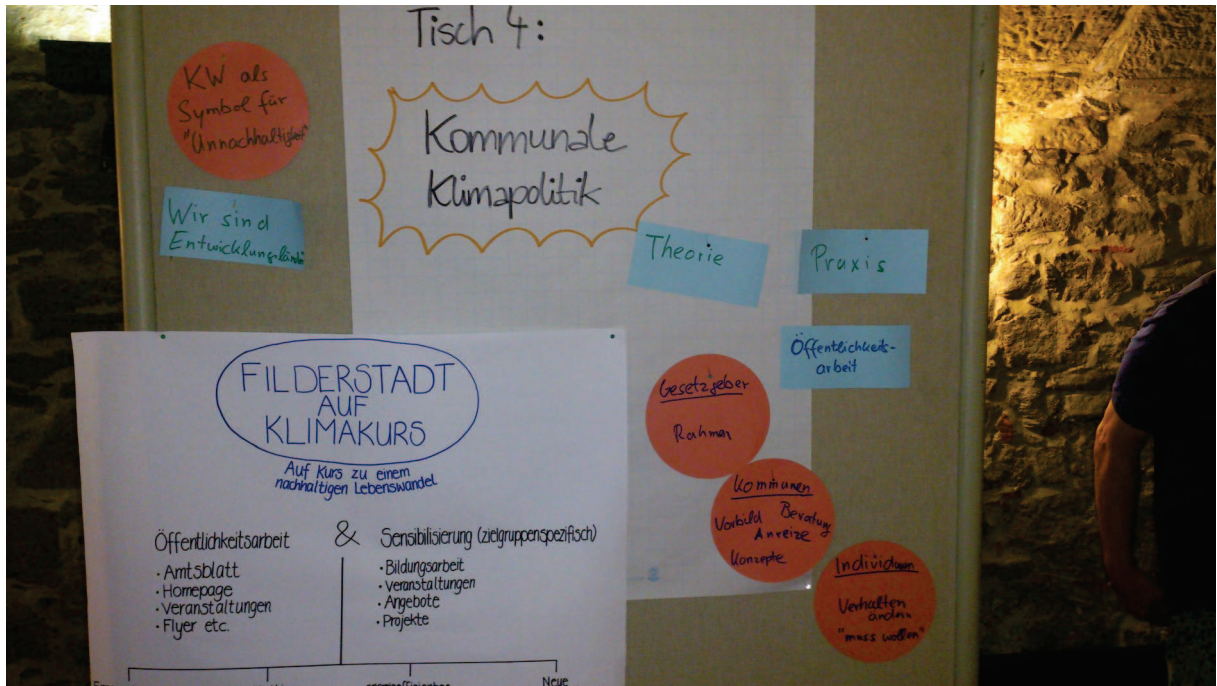 Tisch 4:
KW als
Symbol für
"Unnachhaltigkeit"
Kommunale
Klimapolitik
Wir sind
Entwicklungsländer
Theorie
Praxis
Öffentlichkeits-
arbeit
Gesetzgeber
Rahmen
Kommunen
Vorbild Beratung
Anreize
Konzepte
Individuum
Verhalten
ändern
"muss wollen"
FILDERSTADT
AUF
KLIMAKURS
Auf Kurs zu einem
nachhaltigen Lebenswandel
Öffentlichkeitsarbeit
· Amtsblatt
· Homepage
· Veranstaltungen
· Flyer etc.
&
Sensibilisierung (zielgruppenspezifisch)
· Bildungsarbeit
· Veranstaltungen
· Angebote
· Projekte
Neue